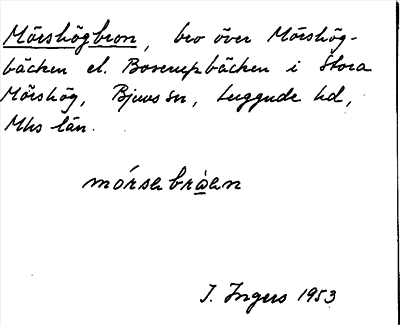 Mörshögbron, bro över Mörshög-
bäcken el. Boserupbäcken i Stora
Mörshög, Bjuvs sn, Luggude hd,
Mhs län.
mórsabråen
I. Ingers 1953